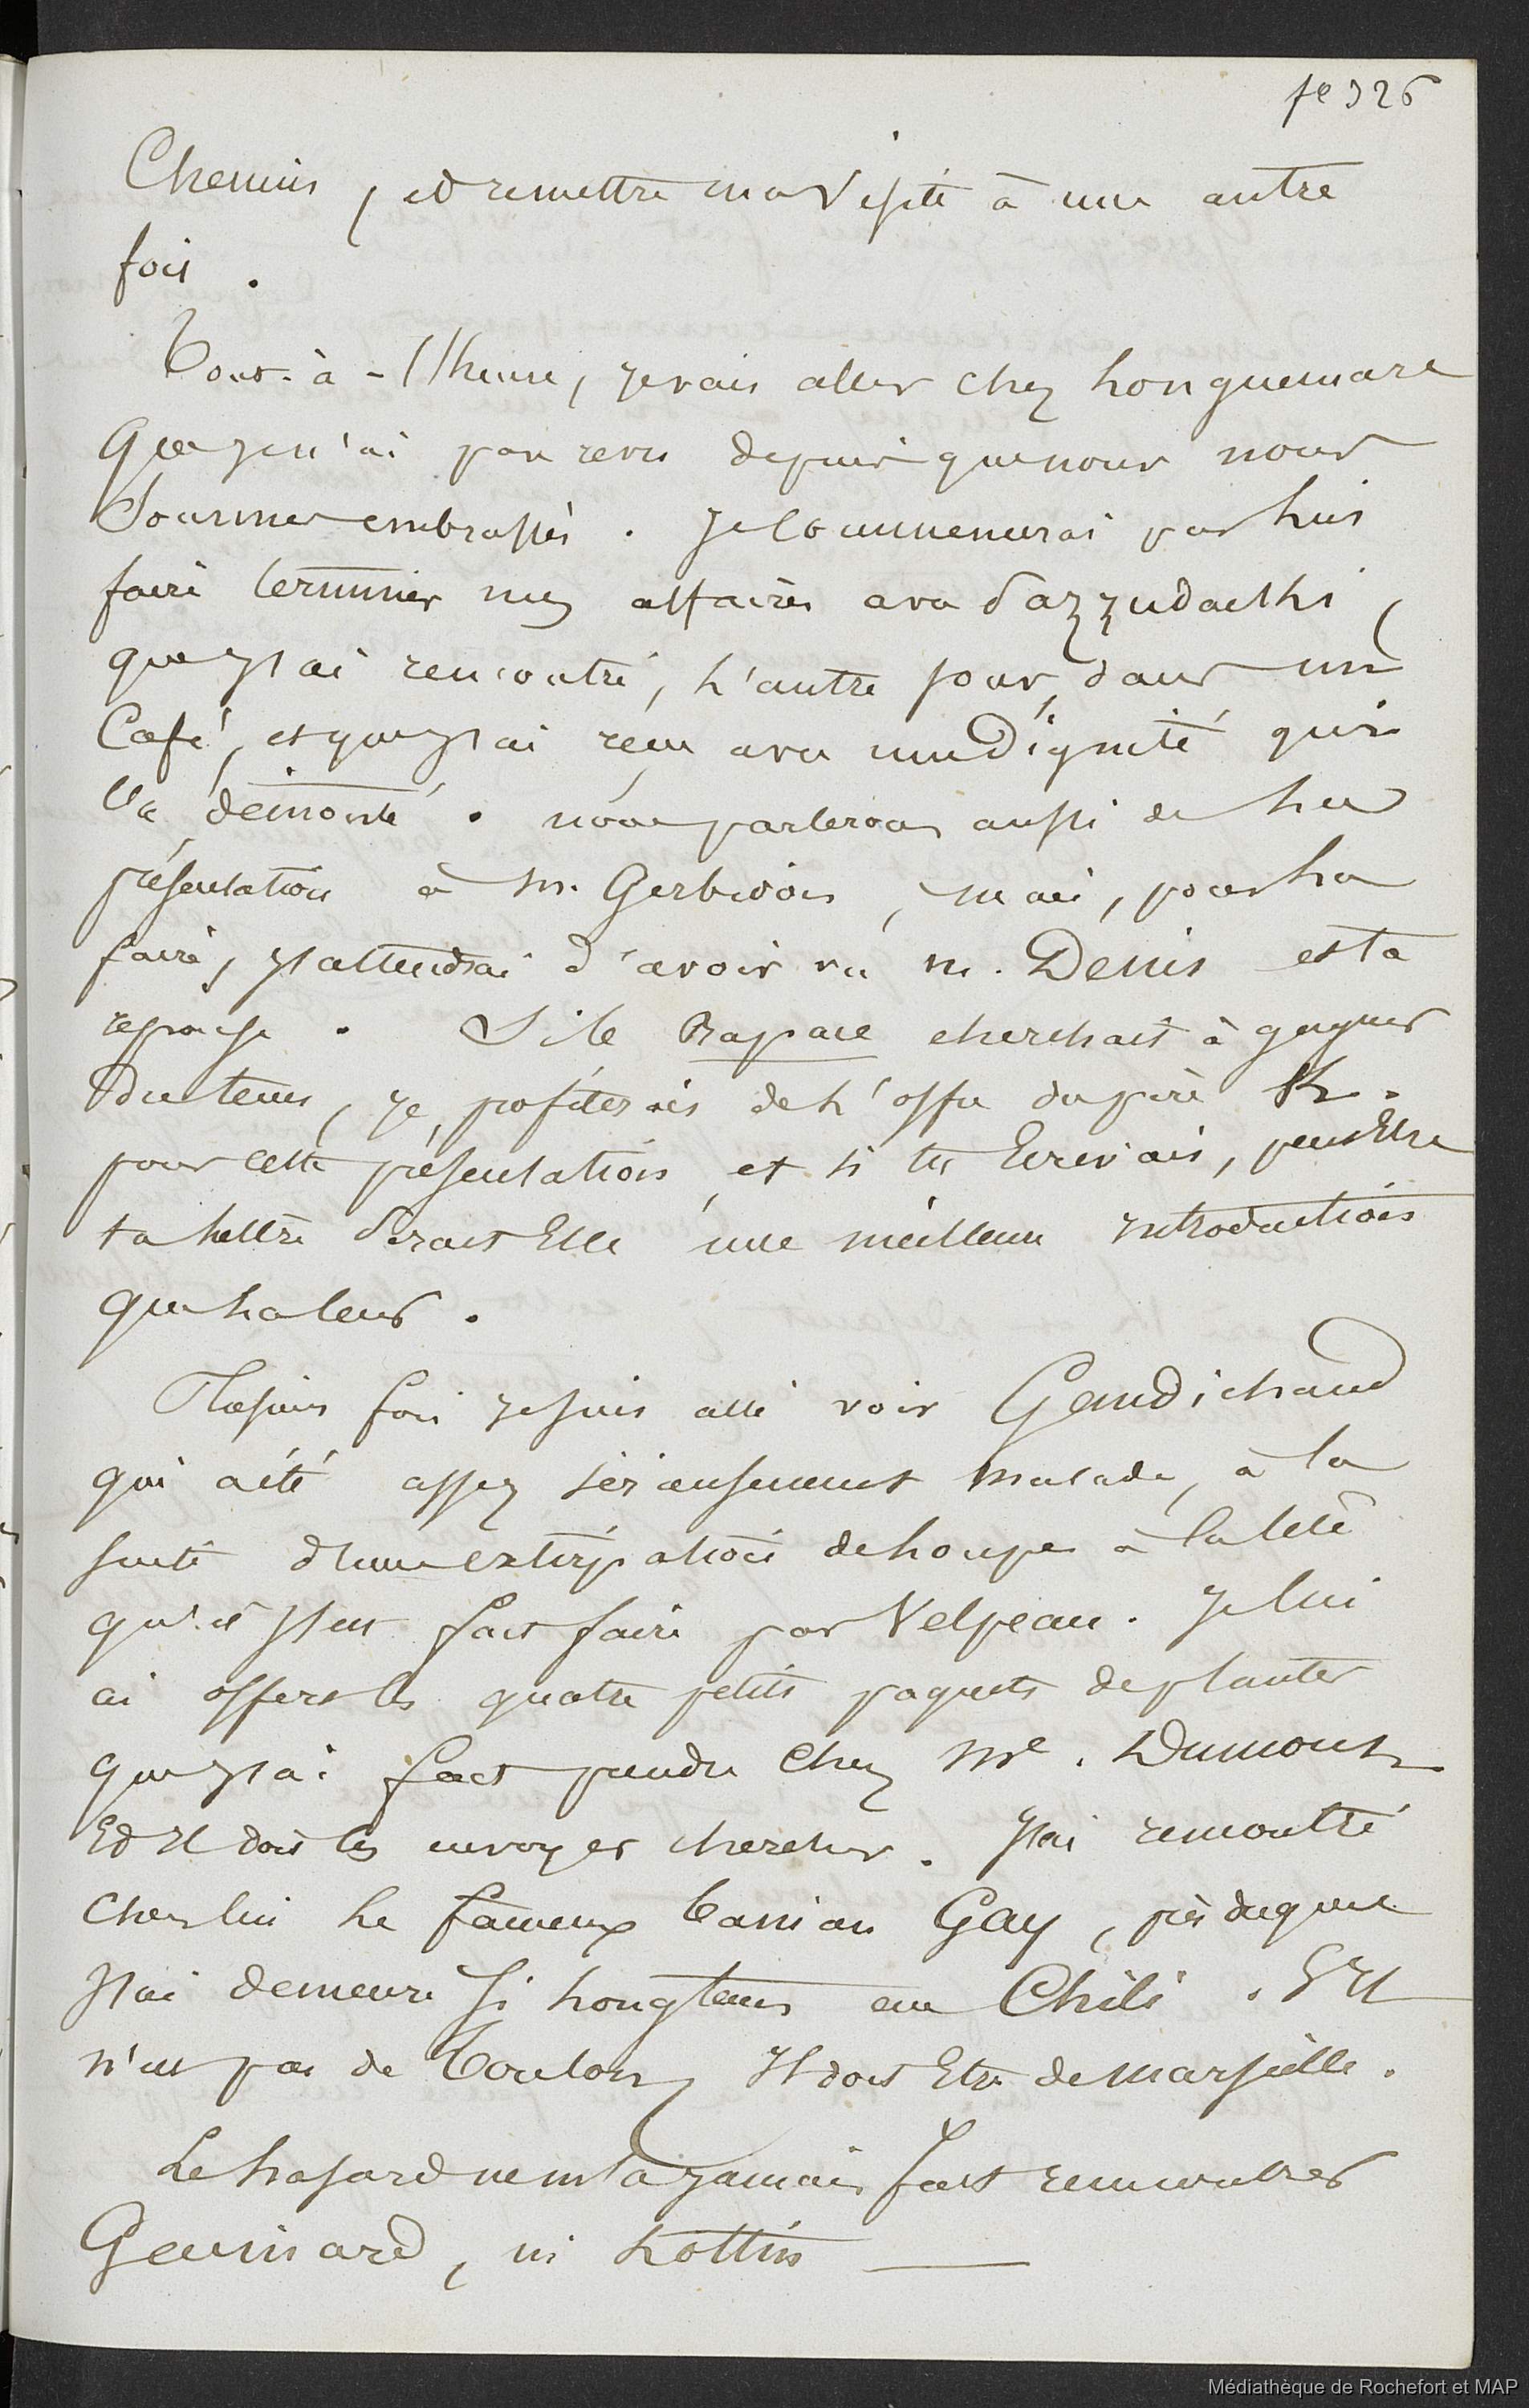 fo 326
Chemin, et remettre ma visite à une autre
fois.
Tout-à-l'heure, je vais aller chez Longuemare
que je n'ai pas revu depuis que nous nous
sommes embrassés. Je commencerai par lui
faire terminer mes affaires avec
que j'ai rencontré, l'autre jour, dans un
Café, et que j'ai reçu avec une dignité qui
l'a démonté. nous parlerons aussi de la
présentation à M. Gerbidon, mais, pour la
faire, j'attendrai d'avoir vu M. Denis et ta
réponse. Si le Rapace cherchait à gagner
du tems, je profiterais de l'offre du père K.
pour cette présentation, et si tu Ecrivais, peut Etre
ta lettre serait Elle une meilleure introduction
que la leur.
Plusieurs fois je suis allé voir Gaudichaud
qui a été assez sérieusement malade, à la
suite d'une extirpation de loupe à la tête
qu'il s'est fait faire par Velpeau. Je lui
ai offert les quatre petits paquets de plantes
que j'ai fait prendre chez Me. Dumont
Et Il doit les envoyer chercher. J'ai rencontré
chez lui le fameux Gay, près duquel
j'ai demeuré si longtems au Chili. S'Il
n'est pas de Toulon, Il doit Etre de marseille.
Le hasard ne m'a jamais fait rencontrer
Geuinard, ni Lottin
Médiathèque de Rochefort et MAP